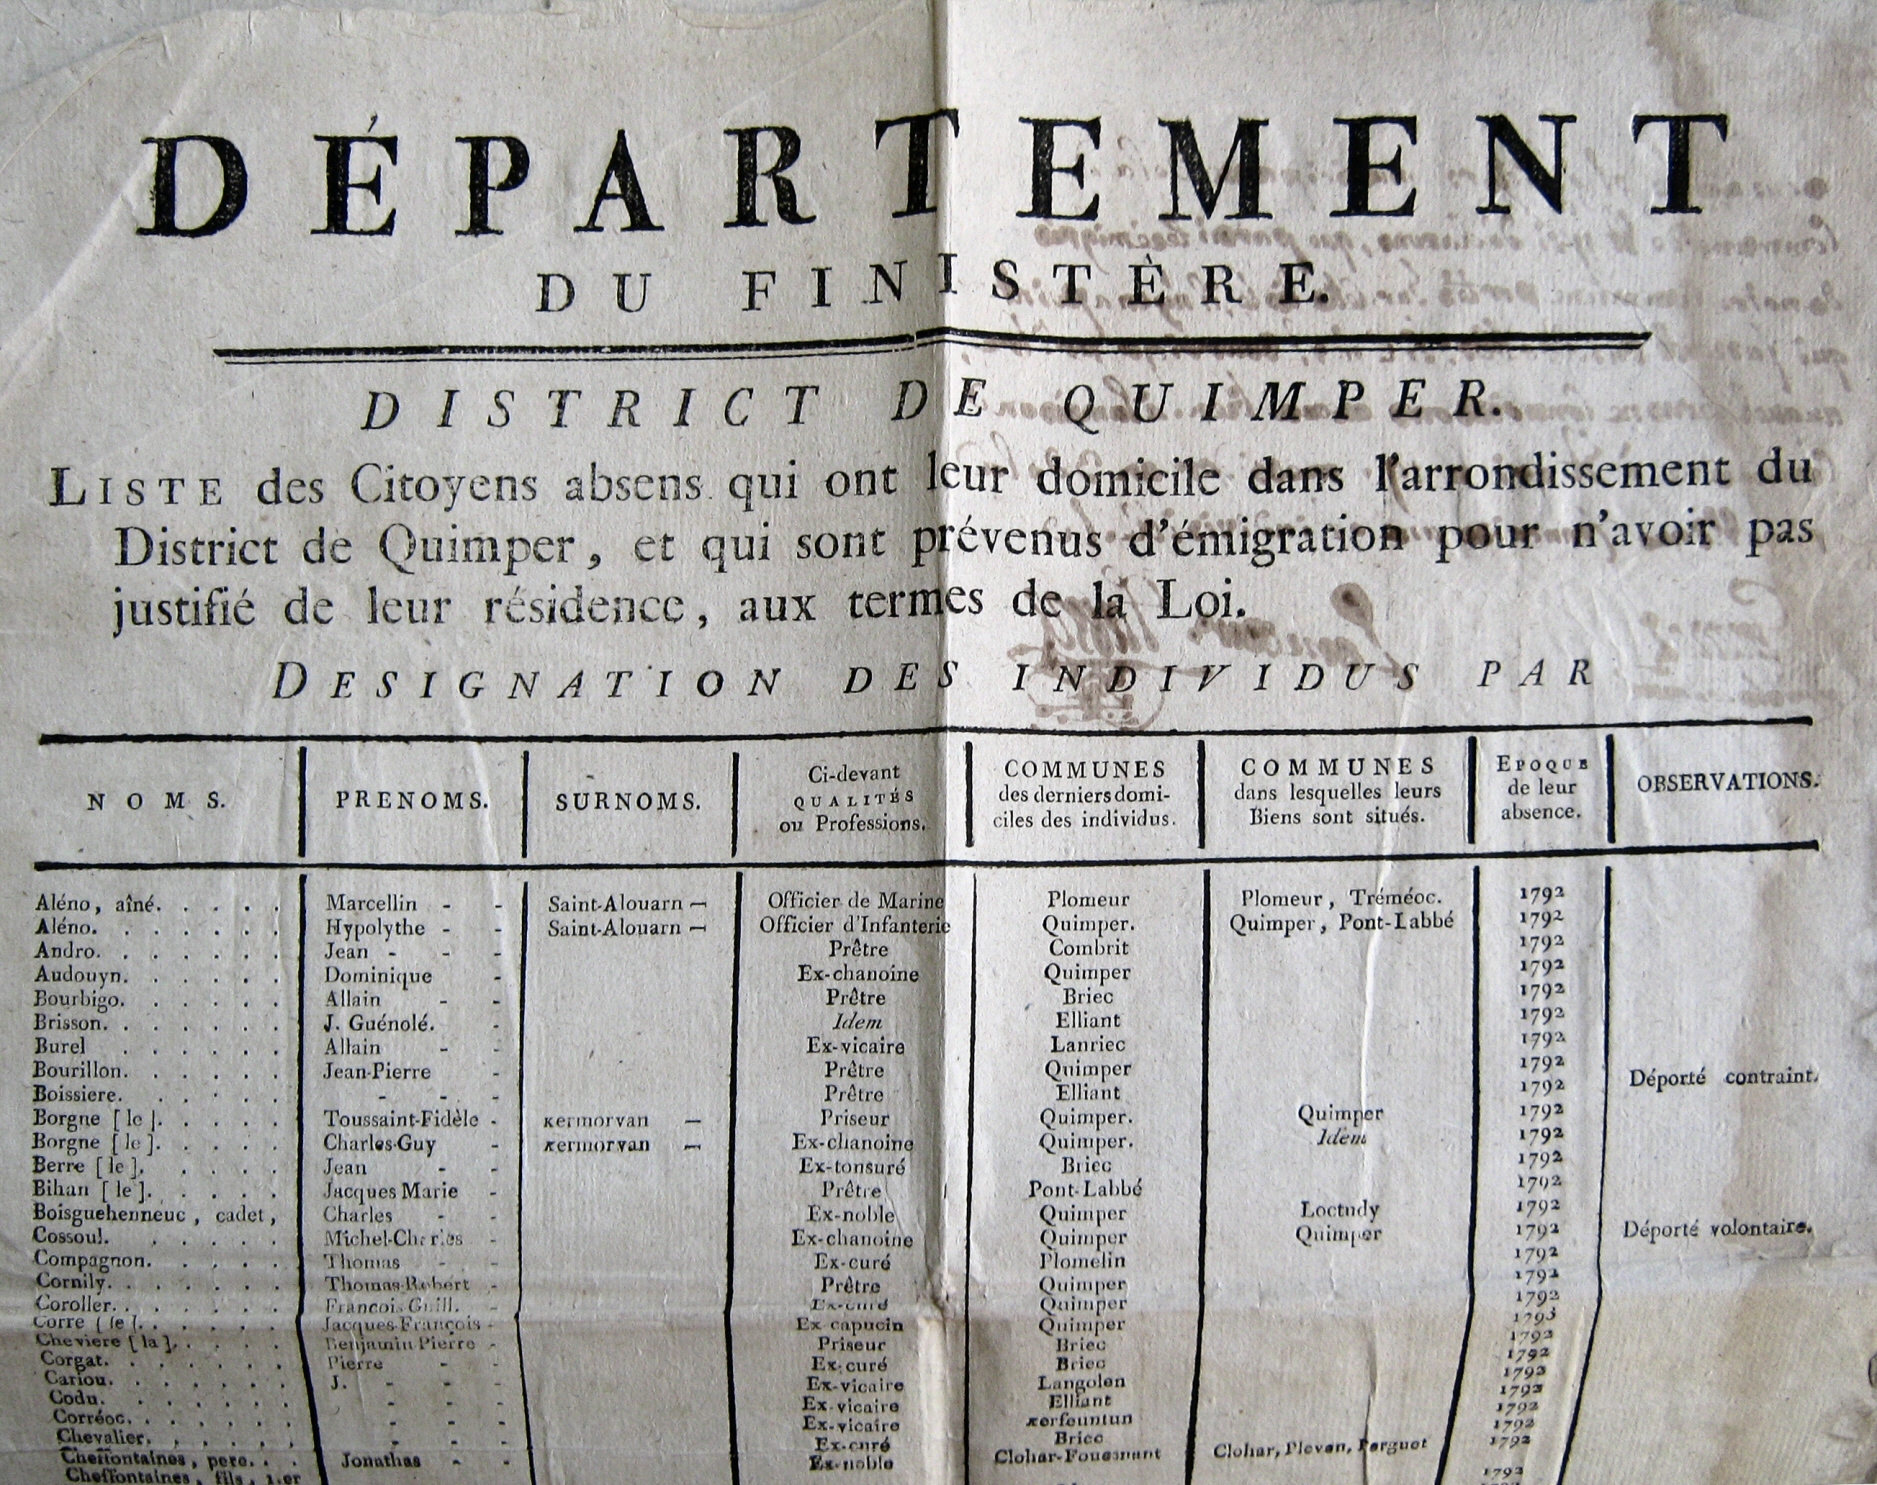 DÉPARTEMENT
DU FINISTÈRE.
DISTRICT DE QUIMPER.
LISTE des Citoyens absens qui ont leur domicile dans l'arrondissement du
District de Quimper, et qui sont prévenus d'émigration pour n'avoir pas
justifié de leur résidence, aux termes de la Loi.
DESIGNATION DES INDIVIDUS PAR
NOMS. PRENOMS. SURNOMS. Ci-devant QUALITÉS ou Professions. COMMUNES des derniers domi-ciles des individus. COMMUNES dans lesquelles leurs Biens sont situés. EPOQUE de leur absence. OBSERVATIONS.
Aléno, aîné. . . . . Marcellin - - Saint-Alouarn — Officier de Marine Plomeur Plomeur, Tréméoc. 1792
Aléno. . . . . . . Hypolythe - - Saint-Alouarn — Officier d'Infanterie Quimper. Quimper, Pont-Labbé 1792
Andro. . . . . . . Jean - - - Prêtre Combrit 1792
Audouyn. . . . . . Dominique - Ex-chanoine Quimper 1792
Bourbigo. . . . . . Allain - - Prêtre Briec 1792
Brisson. . . . . . . J. Guénolé. - Idem Elliant 1792
Burel . . . . . . Allain - - Ex-vicaire Lanriec 1792
Bourillon. . . . . . Jean-Pierre - Prêtre Quimper 1792 Déporté contraint.
Boissiere. . . . . . - - - Prêtre Elliant 1792
Borgne [le]. . . . . Toussaint-Fidèle - Kermorvan — Priseur Quimper. Quimper 1792
Borgne [le]. . . . . Charles-Guy - Kermorvan — Ex-chanoine Quimper. Idem 1792
Berre [le]. . . . . Jean - - Ex-tonsuré Briec 1792
Bihan [le]. . . . . Jacques Marie - Prêtre Pont-Labbé 1792
Boisguehenneuc, cadet, Charles - - Ex-noble Quimper Loctudy 1792
Cossoul. . . . . . Michel-Charles - Ex-chanoine Quimper Quimper 1792 Déporté volontaire.
Compagnon. . . . . Thomas - - Ex-curé Plomelin 1792
Cornily. . . . . . . Thomas-Robert - Prêtre Quimper 1792
Coroller. . . . . . . François Guill. - Ex-curé Quimper 1792
Corre [le]. . . . . . Jacques-François - Ex capucin Quimper 1793
Cheviere [la]. . . . . Benjamin Pierre - Priseur Briec 1792
Corgat. . . . . . . Pierre - - Ex-curé Briec 1792
Cariou. . . . . . . J. - - - Ex-vicaire Langolen 1792
Codu. . . . . . . - - - Ex-vicaire Elliant 1792
Corréoc. . . . . . . - - - Ex-vicaire Kerfeuntun 1792
Chevalier. . . . . . - - - Ex-curé Briec 1792
Cheffontaines, pere. . . Jonathas - - Ex-noble Clohar-Fouesnant Clohar, Pleven, Perguet 1792
Cheffontaines, fils, 1.er 1792